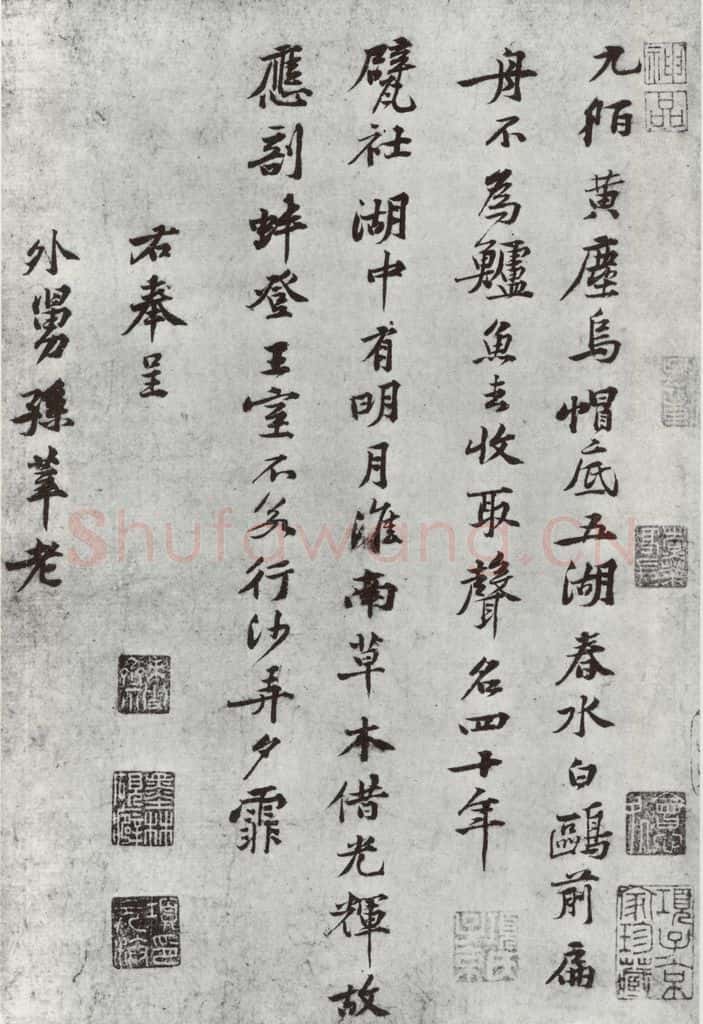 神品
項子京家珍藏
九陌黃塵烏帽底五湖春水白鷗前扁
舟不為鱸魚去收取聲名四十年
甓社湖中有明月淮南草木借光輝故
應剖蚌登王室不若行沙弄夕霏
右奉呈
外舅孫莘老
Shufawang.CN